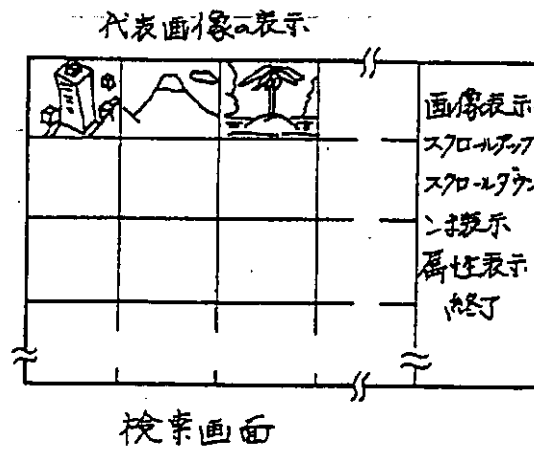 代表画像の表示
画像表示
スクロールアップ
スクロールダウン
属性表示
終了
検索画面